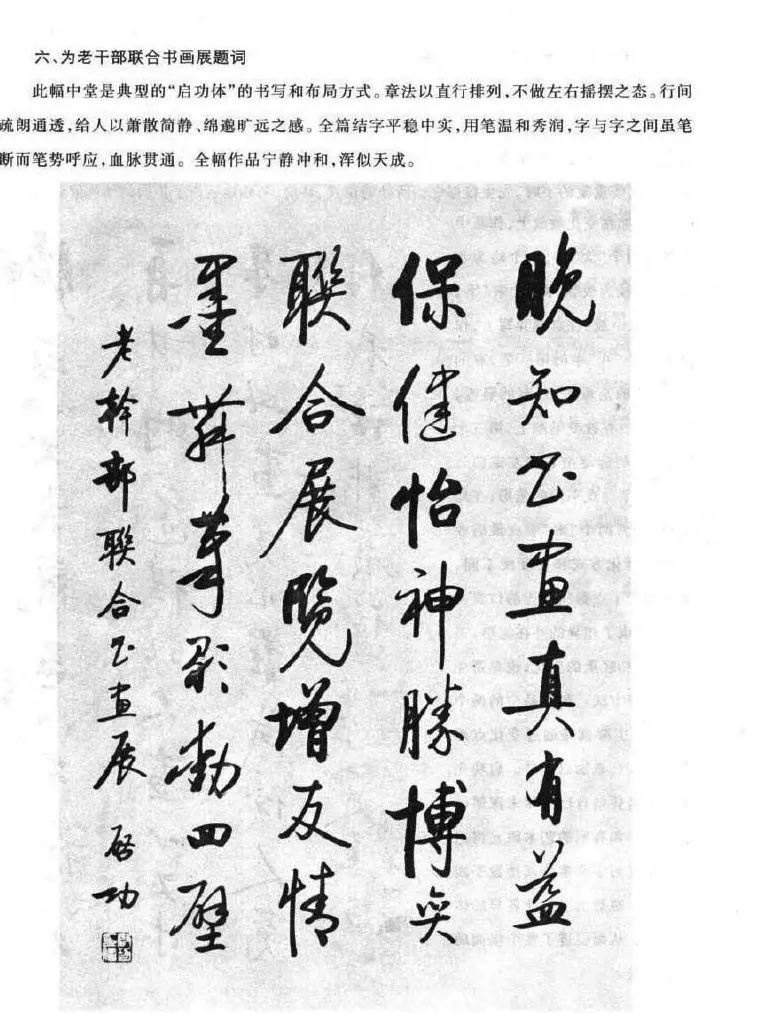 六、为老干部联合书画展题词
此幅中堂是典型的“启功体”的书写和布局方式。章法以直行排列，不做左右摇摆之态。行间
疏朗通透，给人以萧散简静、绵邈旷远之感。全篇结字平稳中实，用笔温和秀润，字与字之间虽笔
断而笔势呼应，血脉贯通。全幅作品宁静冲和，浑似天成。
晚知书畫真有益
保健怡神勝博奕
聯合展覽增友情
墨舞筆歌動四壁
老幹部聯合书畫展 啓功